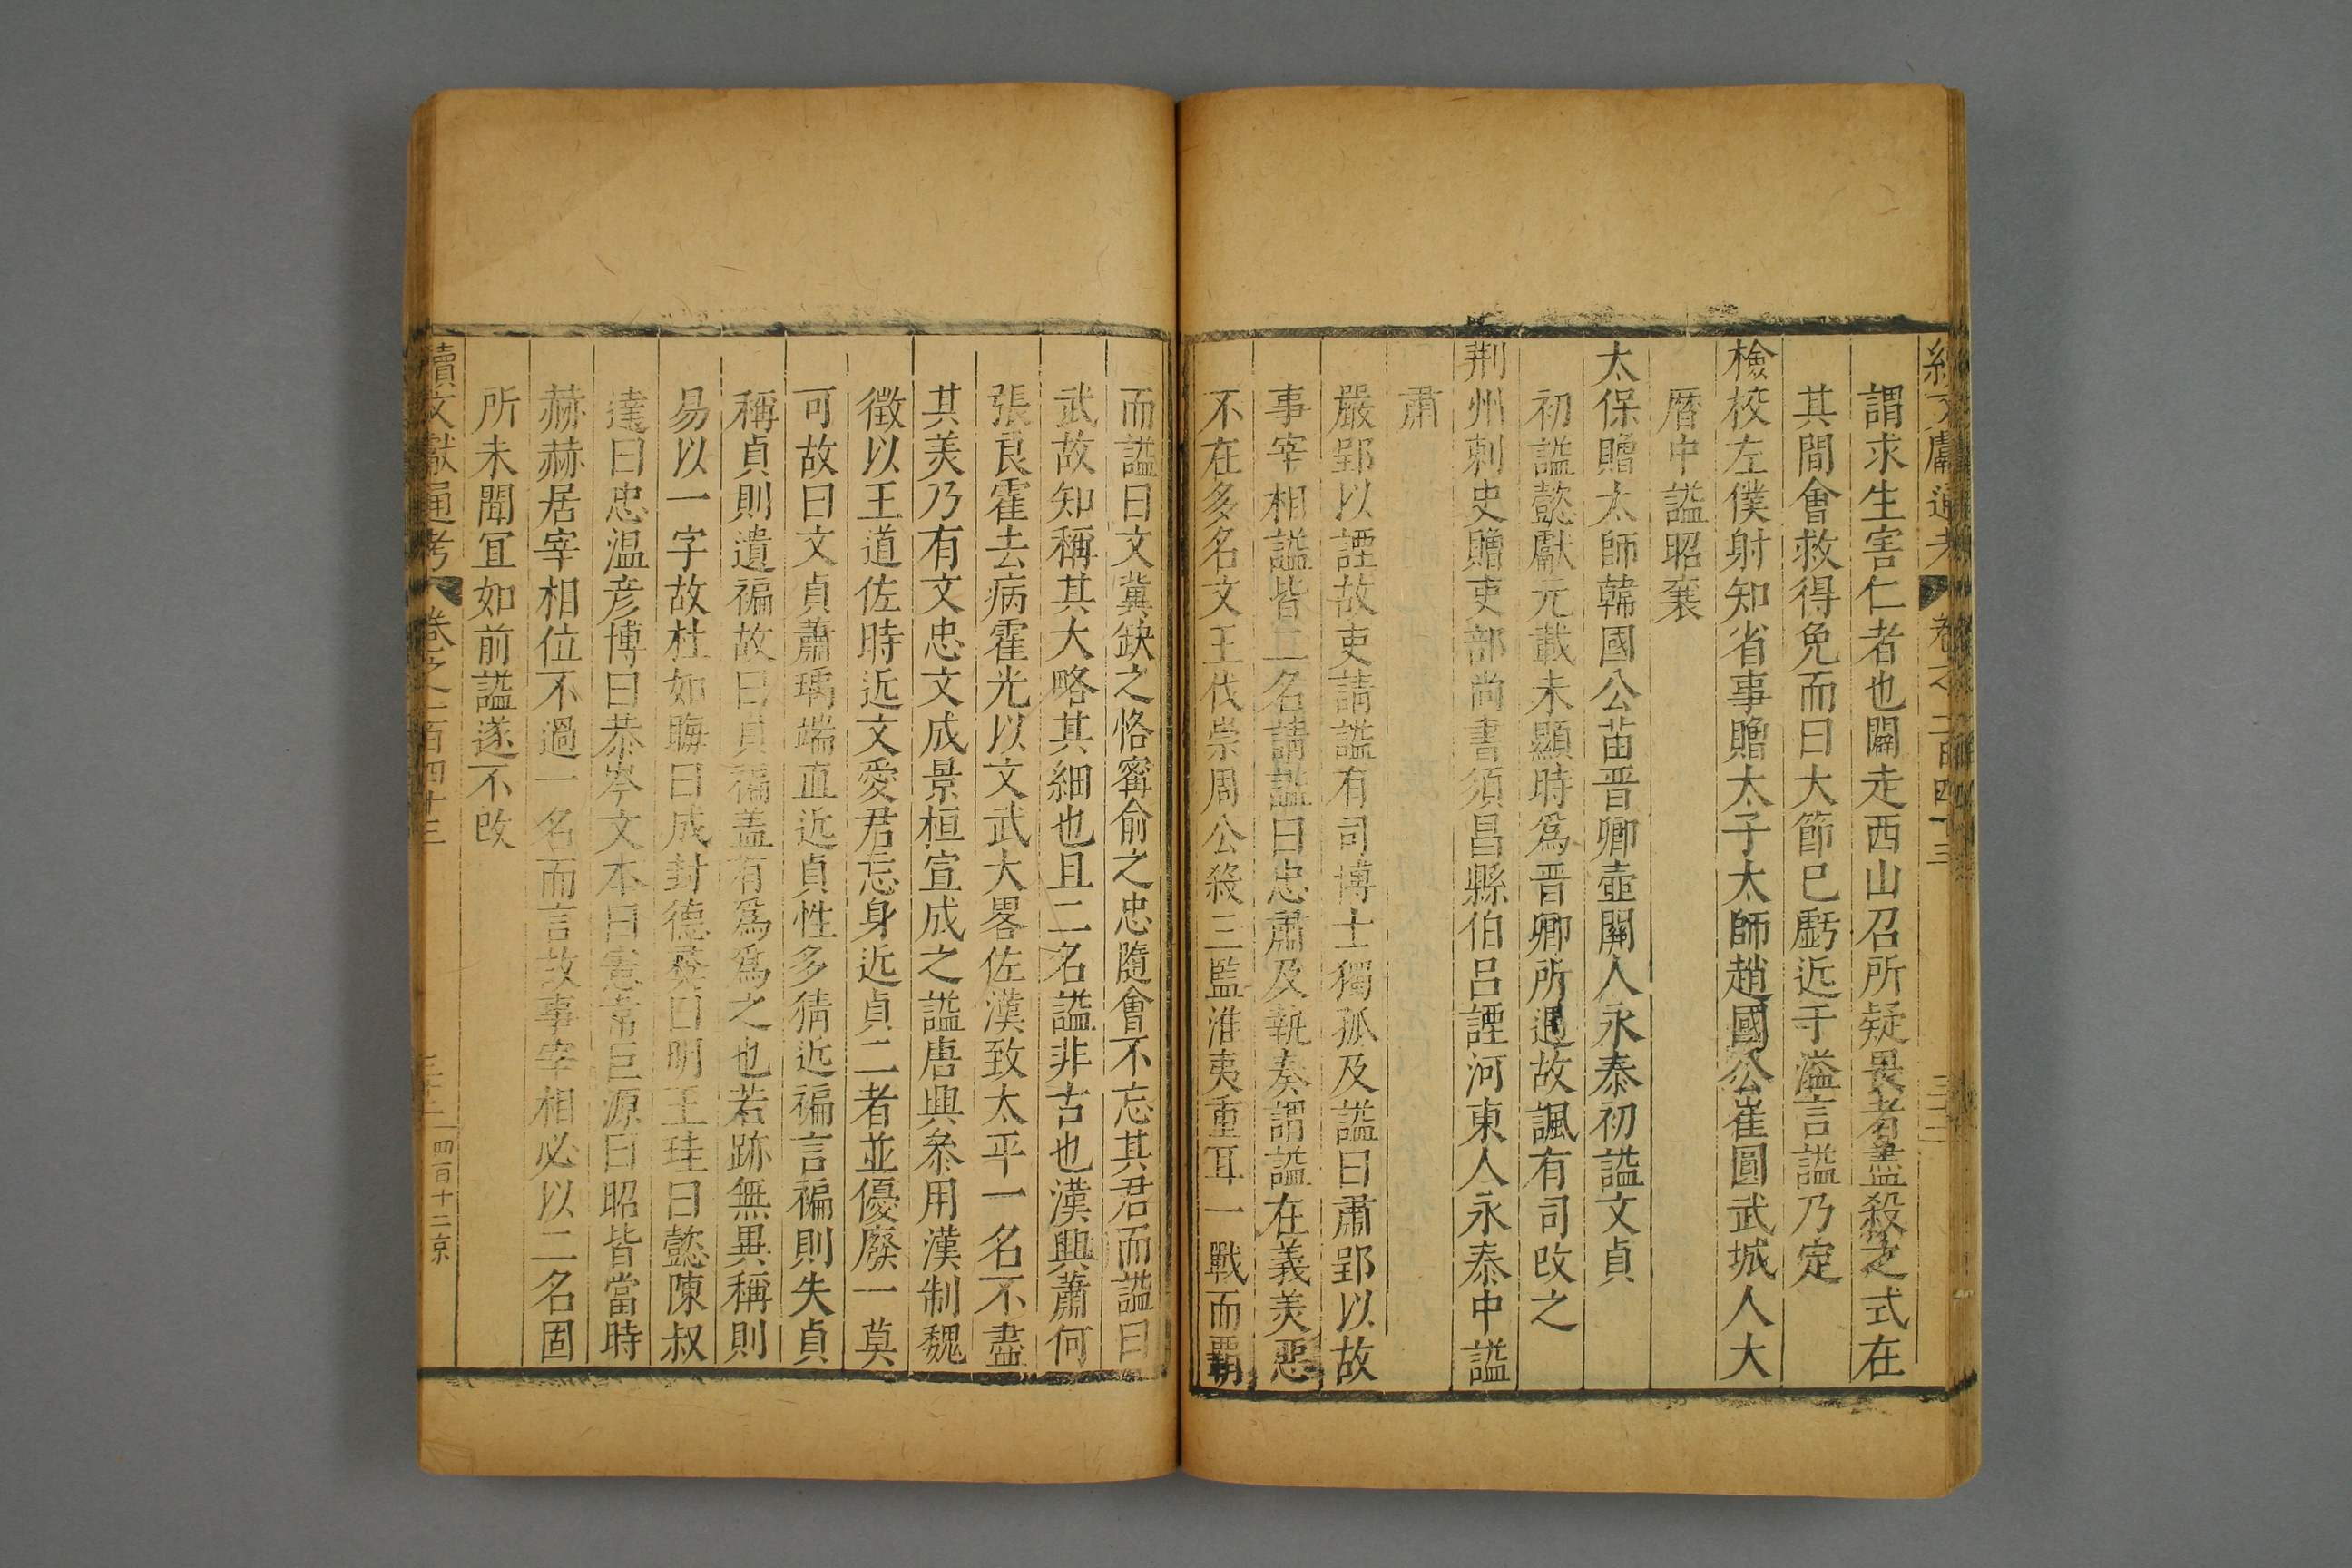 續文獻通考 卷之一百四十三
謂求生害仁者也闢走西山召所疑畏者盡殺之式在
其間會救得免而曰大節已虧近于溢言謚乃定
檢校左僕射知省事贈太子太師趙國公崔圓武城人大
曆中謚昭襄
太保贈太師韓國公苗晋卿壺關人永泰初謚文貞
初謚懿獻元載未顯時爲晋卿所遇故諷有司改之
荆州刺史贈吏部尚書須昌縣伯呂諲河東人永泰中謚
肅
嚴郢以諲故吏請謚有司博士獨孤及謚曰肅郢以故
事宰相謚皆二名請謚曰忠肅及執奏謂謚在義美惡
不在多名文王伐崇周公殺三監淮夷重耳一戰而霸
而謚曰文冀缺之恪甯俞之忠隨會不忘其君而謚曰
武故知稱其大略其細也且二名謚非古也漢興蕭何
張良霍去病霍光以文武大畧佐漢致太平一名不盡
其美乃有文忠文成景桓宣成之謚唐興叅用漢制魏
徵以王道佐時近文愛君忘身近貞二者並優廢一莫
可故曰文貞蕭瑀端直近貞性多猜近褊言褊則失貞
稱貞則遺褊故曰貞褊盖有爲爲之也若跡無異稱則
易以一字故杜如晦曰成封德彝曰明王珪曰懿陳叔
達曰忠温彦博曰恭岑文本曰憲韋巨源曰昭皆當時
赫赫居宰相位不過一名而言故事宰相必以二名固
所未聞宜如前謚遂不改
續文獻通考 卷之一百四十三
四百十二京